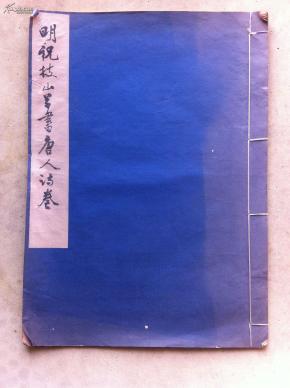 明祝枝山草書唐人詩卷